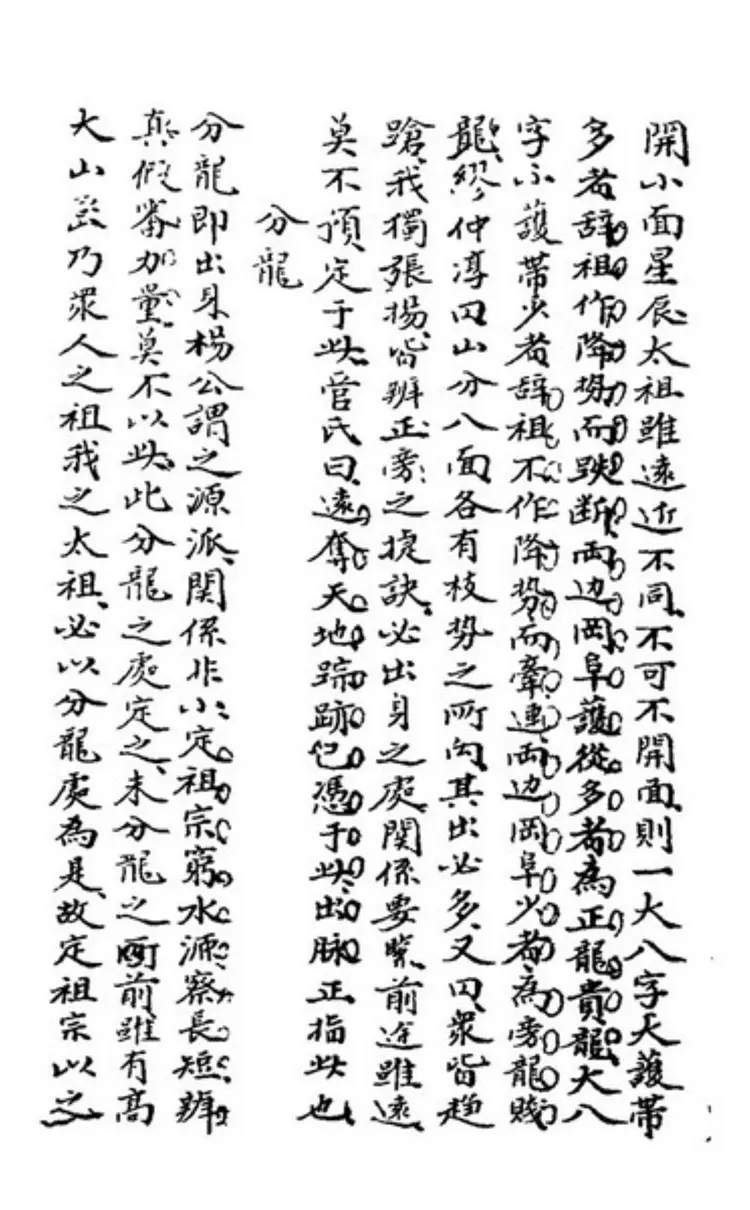 開小面星辰太祖雖遠近不同不可不開面則一大八字天護帶
多者辞祖作降势而跌断両边岡阜護從多者為正龍貴龍大八
字小護帶少者辞祖不作降势而牽連両边岡阜少者為旁龍賤
龍繆仲淳曰山分八面各有枝势之所向其出必多又曰衆皆趋
蹌我獨張揚皆辨正旁之捷訣必出身之處関係要緊前途雖遠
莫不預定于此管氏曰遠奪天地踪跡已憑于此出脉正指此也
分龍
分龍即出身楊公謂之源派関係非小定祖宗窮水源察長短辨
真假審加量莫不以此此分龍之處定之未分龍之所前雖有高
大山岂乃衆人之祖我之太祖必以分龍處為是故定祖宗以之